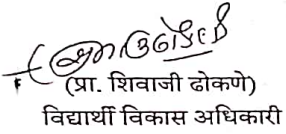 (प्रा. शिवाजी ढोकणे)
विद्यार्थी विकास अधिकारी